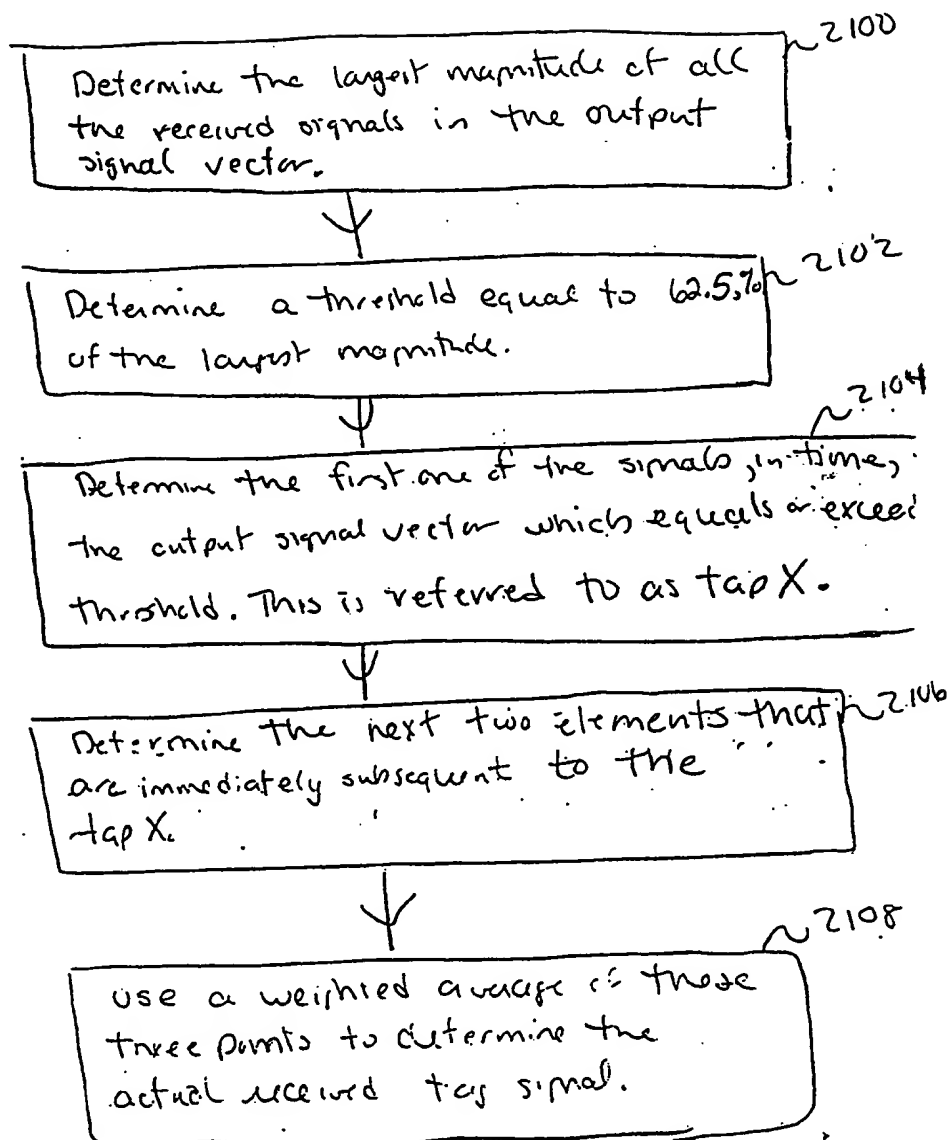 2100
Determine the largest magnitude of all
the received signals in the output
signal vector.
2102
Determine a threshold equal to 62.5%
of the largest magnitude.
2104
Determine the first one of the signals, in time,
the output signal vector which equals or exceed
threshold. This is referred to as tap X.
2106
Determine the next two elements that
are immediately subsequent to the
tap X.
2108
Use a weighted average of these
three points to determine the
actual received tag signal.